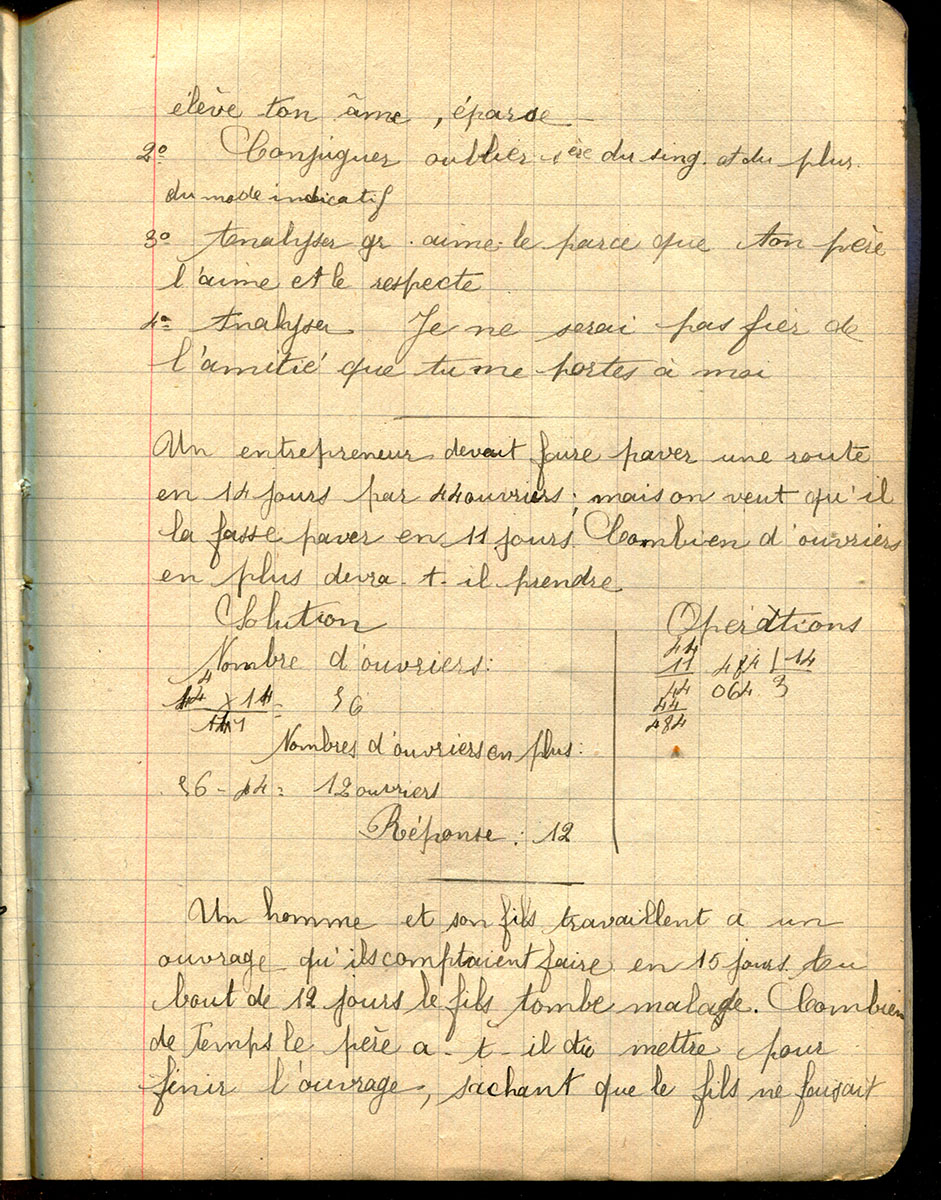 élève ton âme, éparse
2º Conjuguer oublier 1ère du sing. et du plur.
du mode indicatif
3º Analyser gr. aime-le parce que ton père
l'aime et le respecte
4º Analyser Je ne serai pas fier de
l'amitié que tu me portes à moi
Un entrepreneur devait faire paver une route
en 14 jours par 44 ouvriers; mais on veut qu'il
la fasse paver en 11 jours. Combien d'ouvriers
en plus devra-t-il prendre
Solution
Nombre d'ouvriers:
= 56
Nombres d'ouvriers en plus:
56 - 44 = 12 ouvriers
Réponse: 12
Opérations
44
11 484 14
44 064 3
44
484
Un homme et son fils travaillent à un
ouvrage qu'ils comptaient faire en 15 jours. Au
bout de 12 jours le fils tombe malade. Combien
de temps le père a-t-il dû mettre pour
finir l'ouvrage, sachant que le fils ne faisait